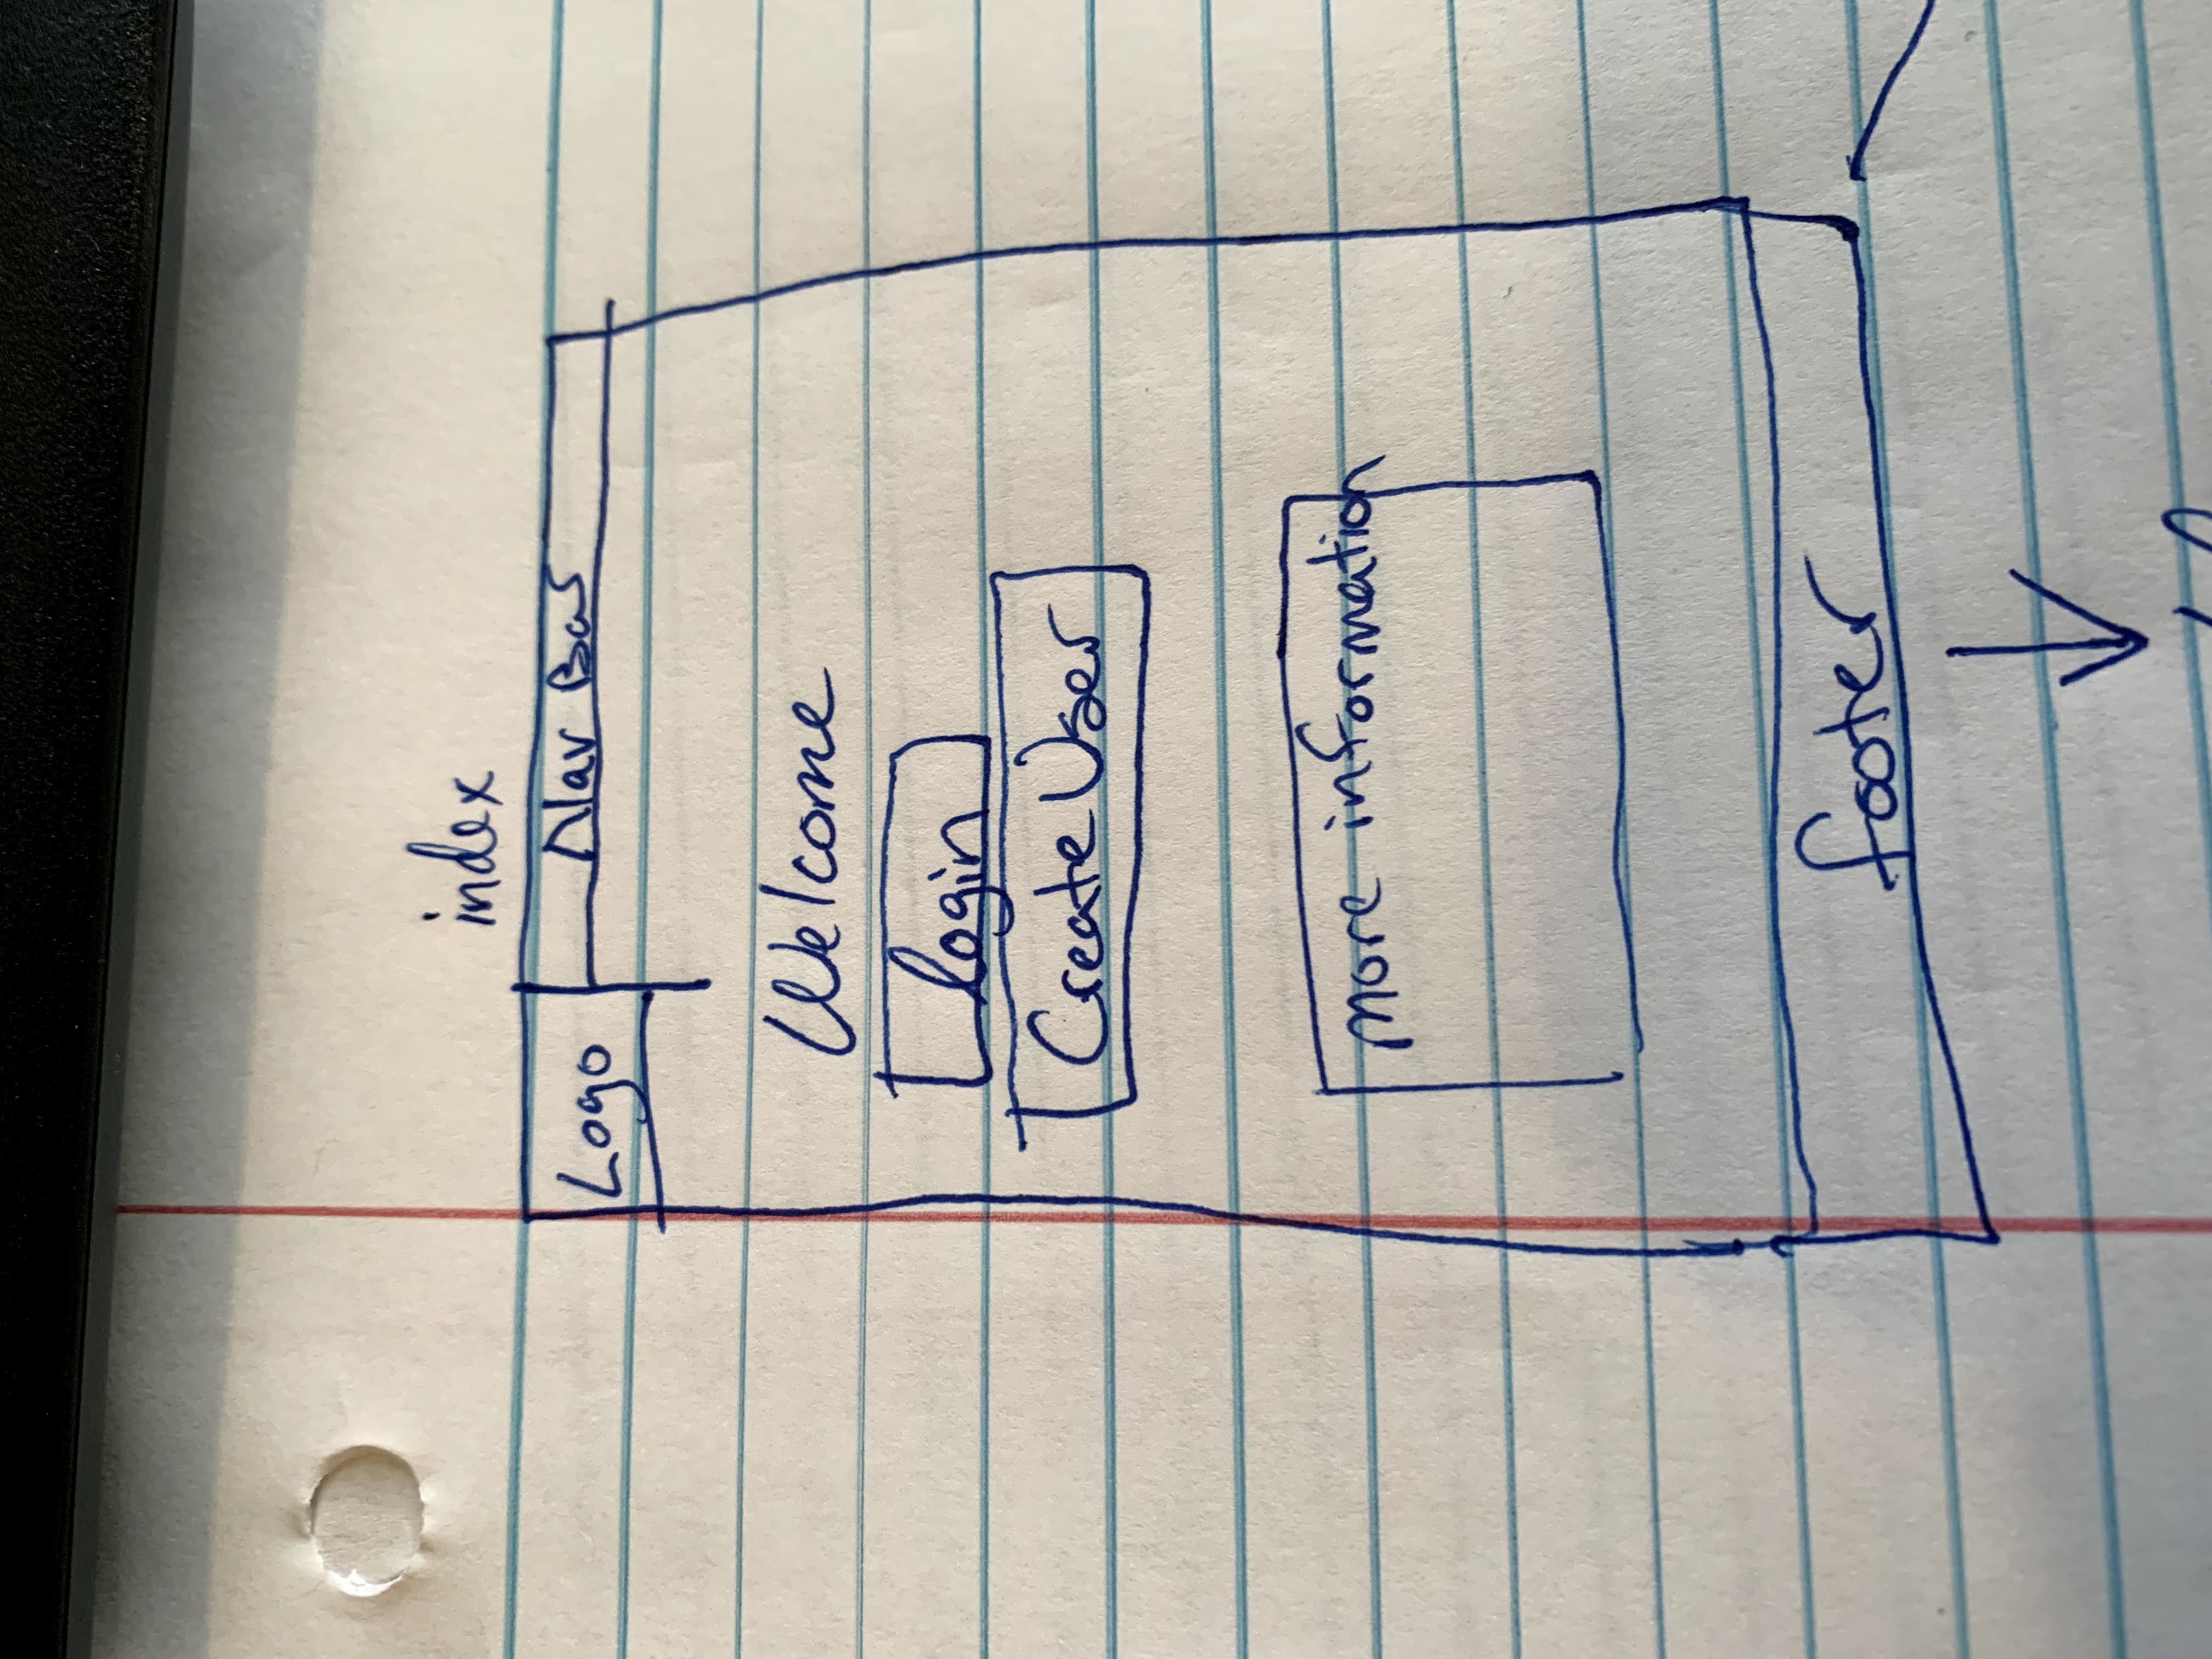 index
Logo
Nav Bar
Welcome
login
Create User
more information
footer